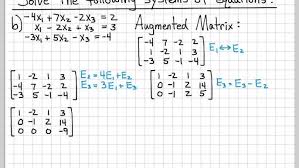 Solve The Following Systems of Equations:
b) -4x₁ + 7x₂ - 2x₃ = 2
x₁ - 2x₂ + x₃ = 3
-3x₁ + 5x₂ - x₃ = -4
Augmented Matrix:
-4 7 -2 2
1 -2 1 3
-3 5 -1 -4
E₁ ↔ E₂
1 -2 1 3
-4 7 -2 2
-3 5 -1 -4
E₂ = 4E₁ + E₂
E₃ = 3E₁ + E₃
1 -2 1 3
0 -1 2 14
0 -1 2 5
E₃ = E₃ - E₂
1 -2 1 3
0 -1 2 14
0 0 0 -9